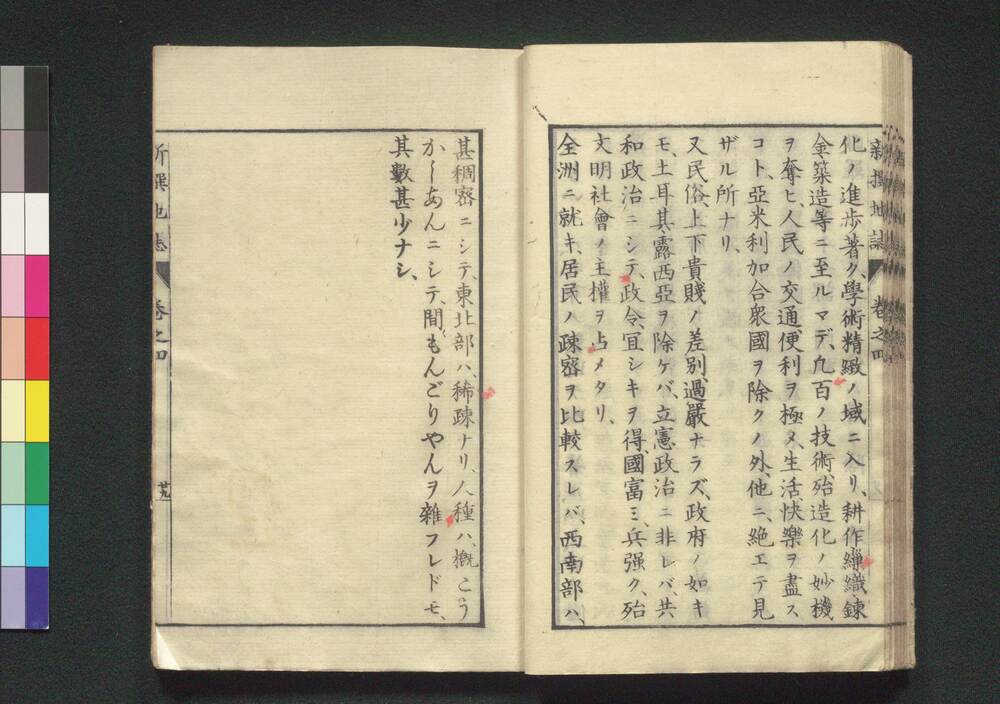 新撰地誌 卷之四
化ノ進步著ク、學術精緻ノ域ニ入リ、耕作繰織鍊
金築造等ニ至ルマデ、凢百ノ技術、殆造化ノ妙機
ヲ奪ヒ、人民ノ交通、便利ヲ極メ、生活、快樂ヲ盡ス
コト、亞米利加合衆國ヲ除クノ外、他ニ、絕エテ見
ザル所ナリ、
又民俗、上下貴賤ノ差別、過嚴ナラズ、政府ノ如キ
モ、土耳其露西亞ヲ除ケバ、立憲政治ニ非レバ、共
和政治ニシテ、政令、冝シキヲ得、國富ミ、兵强ク、殆
文明社會ノ主權ヲ占メタリ、
全洲ニ就キ、居民ノ疎密ヲ比較スレバ、西南部ハ、
甚稠密ニシテ、東北部ハ、稀疎ナリ、人種ハ、槪こう
かーあんニシテ、間〻もんごりやんヲ雜フレドモ、
其數甚少ナシ、
新撰地誌 卷之四 廿九